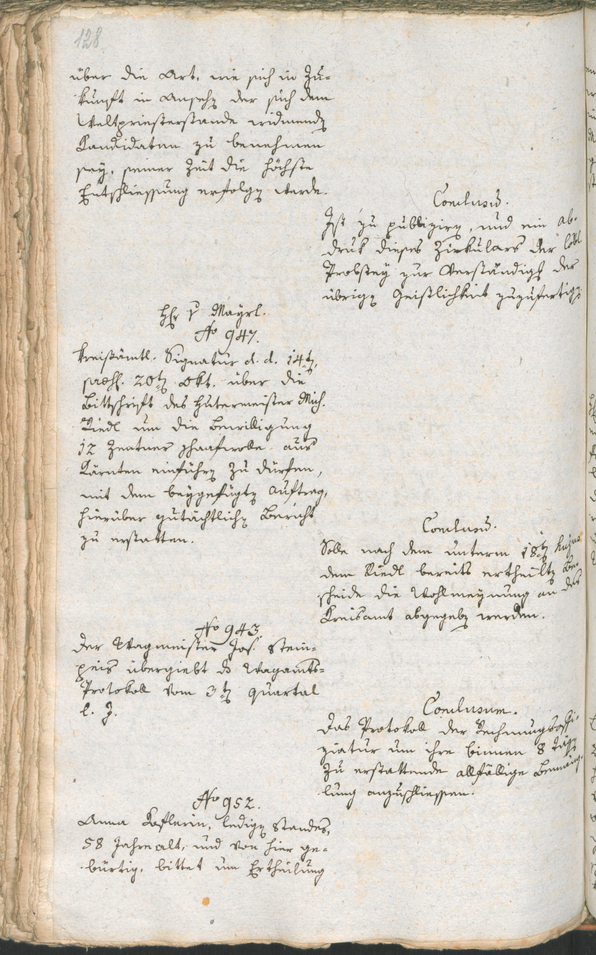 128
über die Art, wie sich in Zu-
kunft in Ansehg der sich dem
Weltpriesterstande widmendn
Kandidaten zu benehmen
sey, seiner Zeit die höchste
Entschliessung erfolgn werde.
Conclusum.
Ist zu publizirn, und ein Ab-
druk dieses Zirkulars der löbl
Probstey zur Verständigg der
übrign Geistlichkeit zuzufertign
Hr v Mayrl.
No 947.
Kreisämtl. Signatur d. d. 14tn,
praes. 20tn Okt. über die
Bittschrift des Hutermeister Mich.
Riedl um die Bewilligung
12 Zentner Schaafwolle aus
Kärnten einführn zu dürfen,
mit dem beygefügtn Auftrag,
hierüber gutächtlichn Bericht
zu erstatten.
Conclusum.
Solle nach dem unterm 18tn hujus
dem Riedl bereits ertheiltn Be-
scheide die Wohlmeynung an das
Kreisamt abgegebn werden.
No 943.
Der Wagmeister Jos. Stein-
übergiebt das Wagamts-
Protokoll vom 3tn Quartal
l. J.
Conclusum.
Das Protokoll der Rechnungsoffi-
ziatur um ihre binnen 8 Tagn
zu erstattende allfällige Bemäng-
lung anzuschliessen.
No 952.
Anna Kaflerin, ledign Standes,
58 Jahre alt, und von hier ge-
bürtig, bittet um Ertheilung